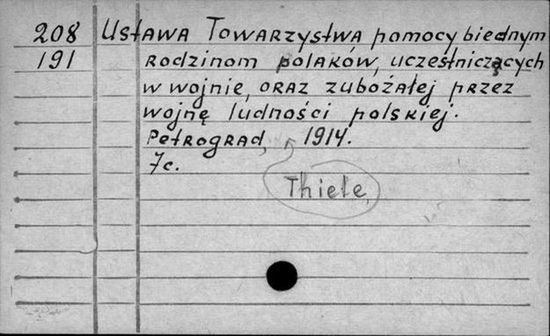 208 Ustawa Towarzystwa pomocy biednym
191 rodzinom polaków, uczestniczących
w wojnie, oraz zubożałej przez
wojnę ludności polskiej.
Petrograd, 1914.
7c.
Thiele,